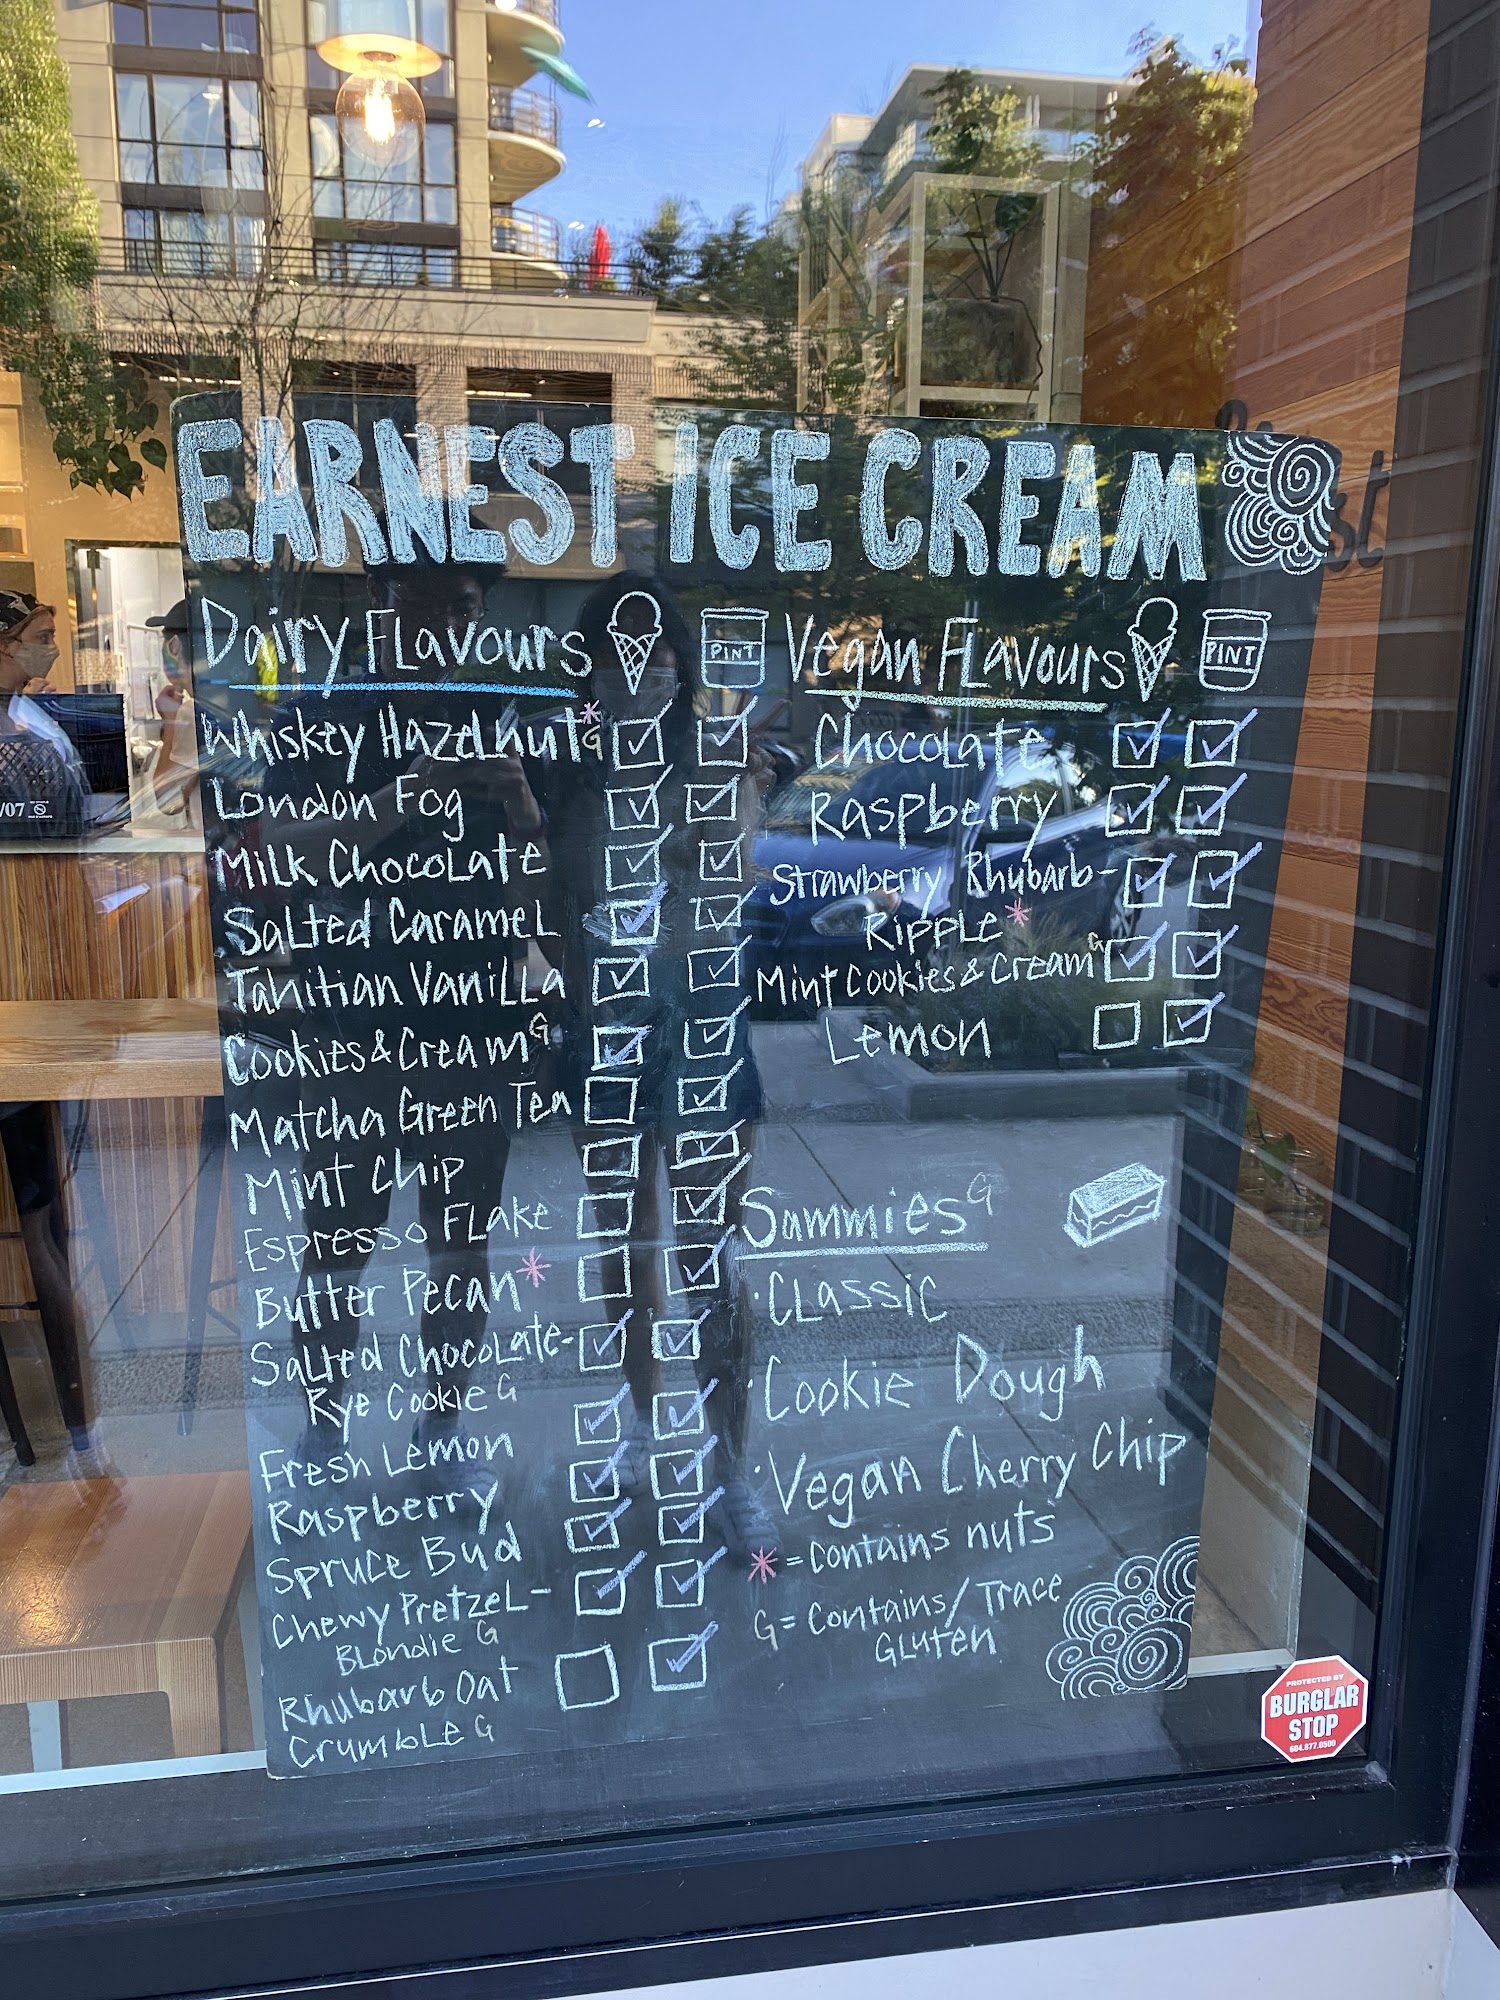 EARNEST ICE CREAM
Dairy FLavours
PINT
Whiskey HazeLnut* G
London Fog
MiLk ChocoLate
SaLted CarameL
Tahitian VaniLLa
Cookies & Cream G
Matcha Green Tea
Mint Chip
Espresso FLake
Butter Pecan*
SaLted ChocoLate-
Rye Cookie G
Fresh Lemon
Raspberry
Spruce Bud
Chewy PretzeL-
BLondie G
Rhubarb Oat
CrumbLe G
Vegan FLavours
PINT
ChocoLate
Raspberry
Strawberry Rhubarb-
RippLe*
Mint Cookies & Cream G
Lemon
Sammies G
· CLassic
· Cookie Dough
· Vegan Cherry Chip
* = Contains nuts
G = Contains/Trace
GLuten
PROTECTED BY
BURGLAR
STOP
604.877.0500
/07